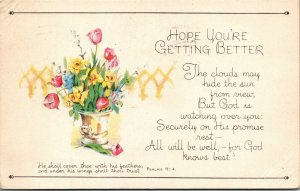 HOPE YOU'RE
GETTING BETTER
The clouds may
hide the sun
from view,
But God is
watching over you:
Securely on His promise
rest—
All will be well,—for God
knows best!
He shall cover thee with his feathers,
and under his wings shalt thou trust. PSALMS 91:4.